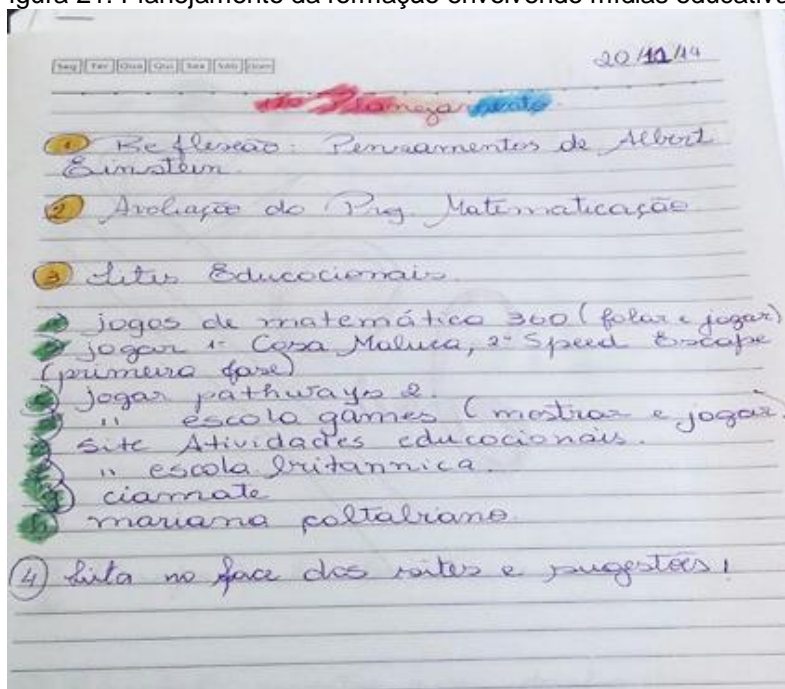 igura 21: Planejamento da formação envolvendo mídias educativa
20/11/14
Seg Ter Qua Qui Sex Sáb Dom
Planejamento
1 Reflexão: Pensamentos de Albert
Einstein.
2 Avaliação do Prog. Matematicação
3 Sites Educacionais.
jogos de matemática 360 (falar e jogar)
jogar 1º Casa Maluca, 2º Speed Escape
(primeira fase)
jogar pathways 2.
" escola games (mostrar e jogar.
site Atividades educacionais.
" escola britannica.
ciamate
mariana
4 Lista no face dos sites e sugestões!